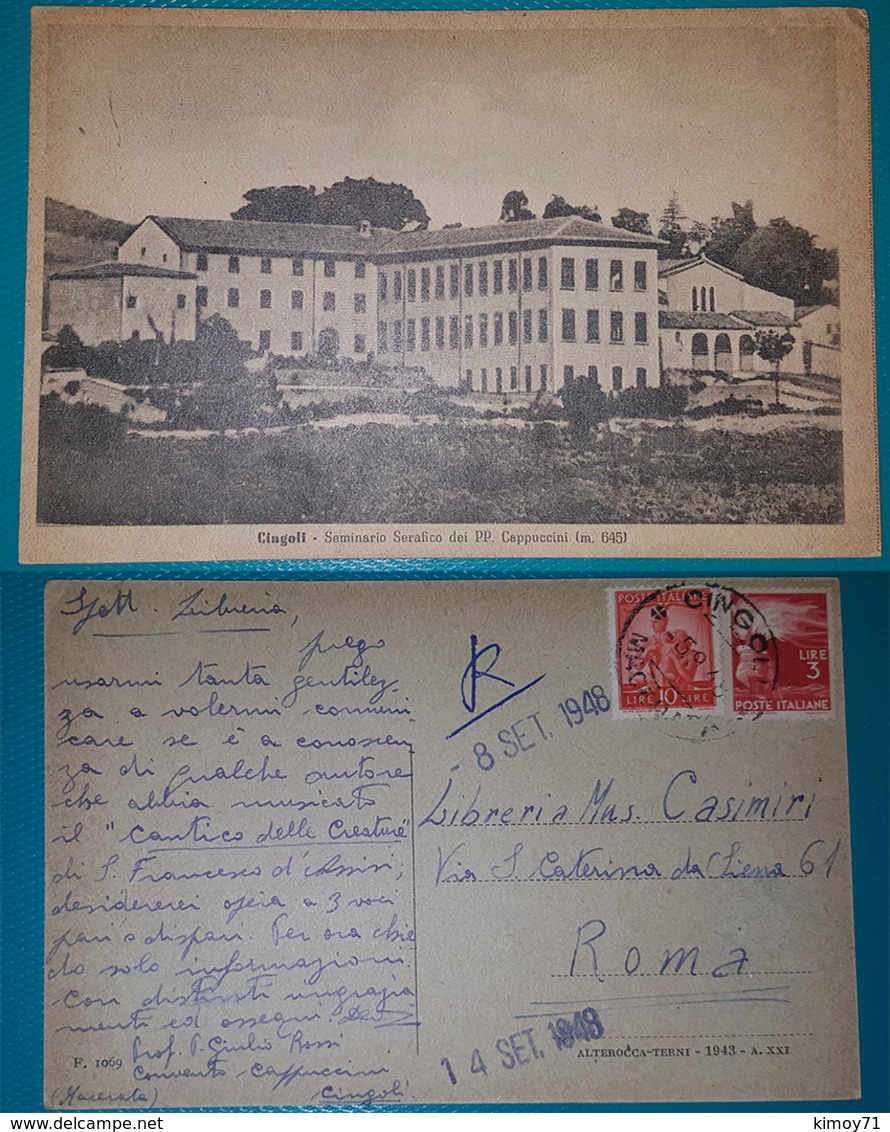 Cingoli - Seminario Serafico dei PP. Cappuccini (m. 645)
Spett. Libreria,
prego
usarmi tanta gentilez-
za a volermi comuni-
care se è a conoscen-
za di qualche autore
che abbia musicato
il "Cantico delle Creature"
di S. Francesco d'Assisi;
desidererei opera a 3 voci
pari o dispari. Per ora chie
do solo informazioni
Con distinti ringrazia
menti ed ossequi.
Prof. P. Giulio Rossi
Convento Cappuccini
Cingoli
(Macerata)
F. 1069
R
POSTE ITALIANE
LIRE 10 LIRE
CINGOLI
LIRE
3
POSTE ITALIANE
- 8 SET. 1948
Libreria Mus. Casimiri
Via S. Caterina da Siena 61
Roma
14 SET. 1948
ALTEROCCA-TERNI - 1943 - A. XXI
delcampe.net
kimoy71